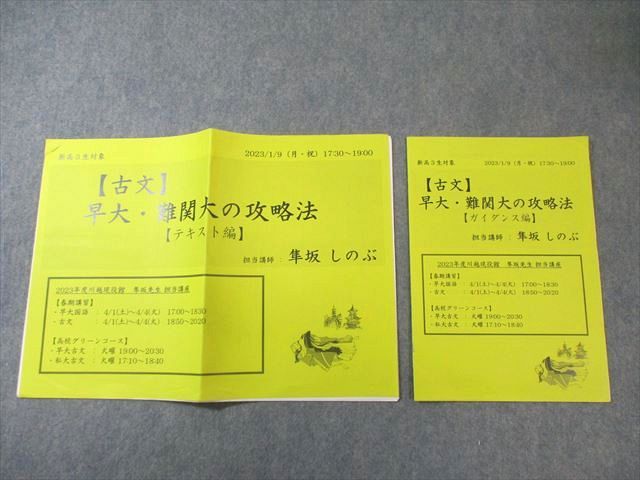 新高3生対象
2023/1/9（月・祝）17:30～19:00
【古文】
早大・難関大の攻略法
【テキスト編】
担当講師：隼坂 しのぶ
2023年度川越現役館 隼坂先生 担当講座
【春期講習】
・早大国語 ： 4/1(土)～4/4(火) 17:00～18:30
・古文 ： 4/1(土)～4/4(火) 18:50～20:20
【高校グリーンコース】
・早大古文 ： 火曜 19:00～20:30
・私大古文 ： 火曜 17:10～18:40
新高3生対象
2023/1/9（月・祝）17:30～19:00
【古文】
早大・難関大の攻略法
【ガイダンス編】
担当講師：隼坂 しのぶ
2023年度川越現役館 隼坂先生 担当講座
【春期講習】
・早大国語 ： 4/1(土)～4/4(火) 17:00～18:30
・古文 ： 4/1(土)～4/4(火) 18:50～20:20
【高校グリーンコース】
・早大古文 ： 火曜 19:00～20:30
・私大古文 ： 火曜 17:10～18:40